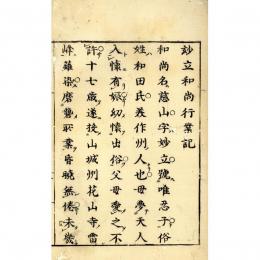 妙立和尚行業記
和尚名慈山字妙立號唯忍子俗
姓和田氏美作州人也母夢天人
入懷有娠幼懷出俗父母愛之不
許十七歲遂投山城州花山寺雷
峰薙染磨礱耻業皆曉無倦未幾